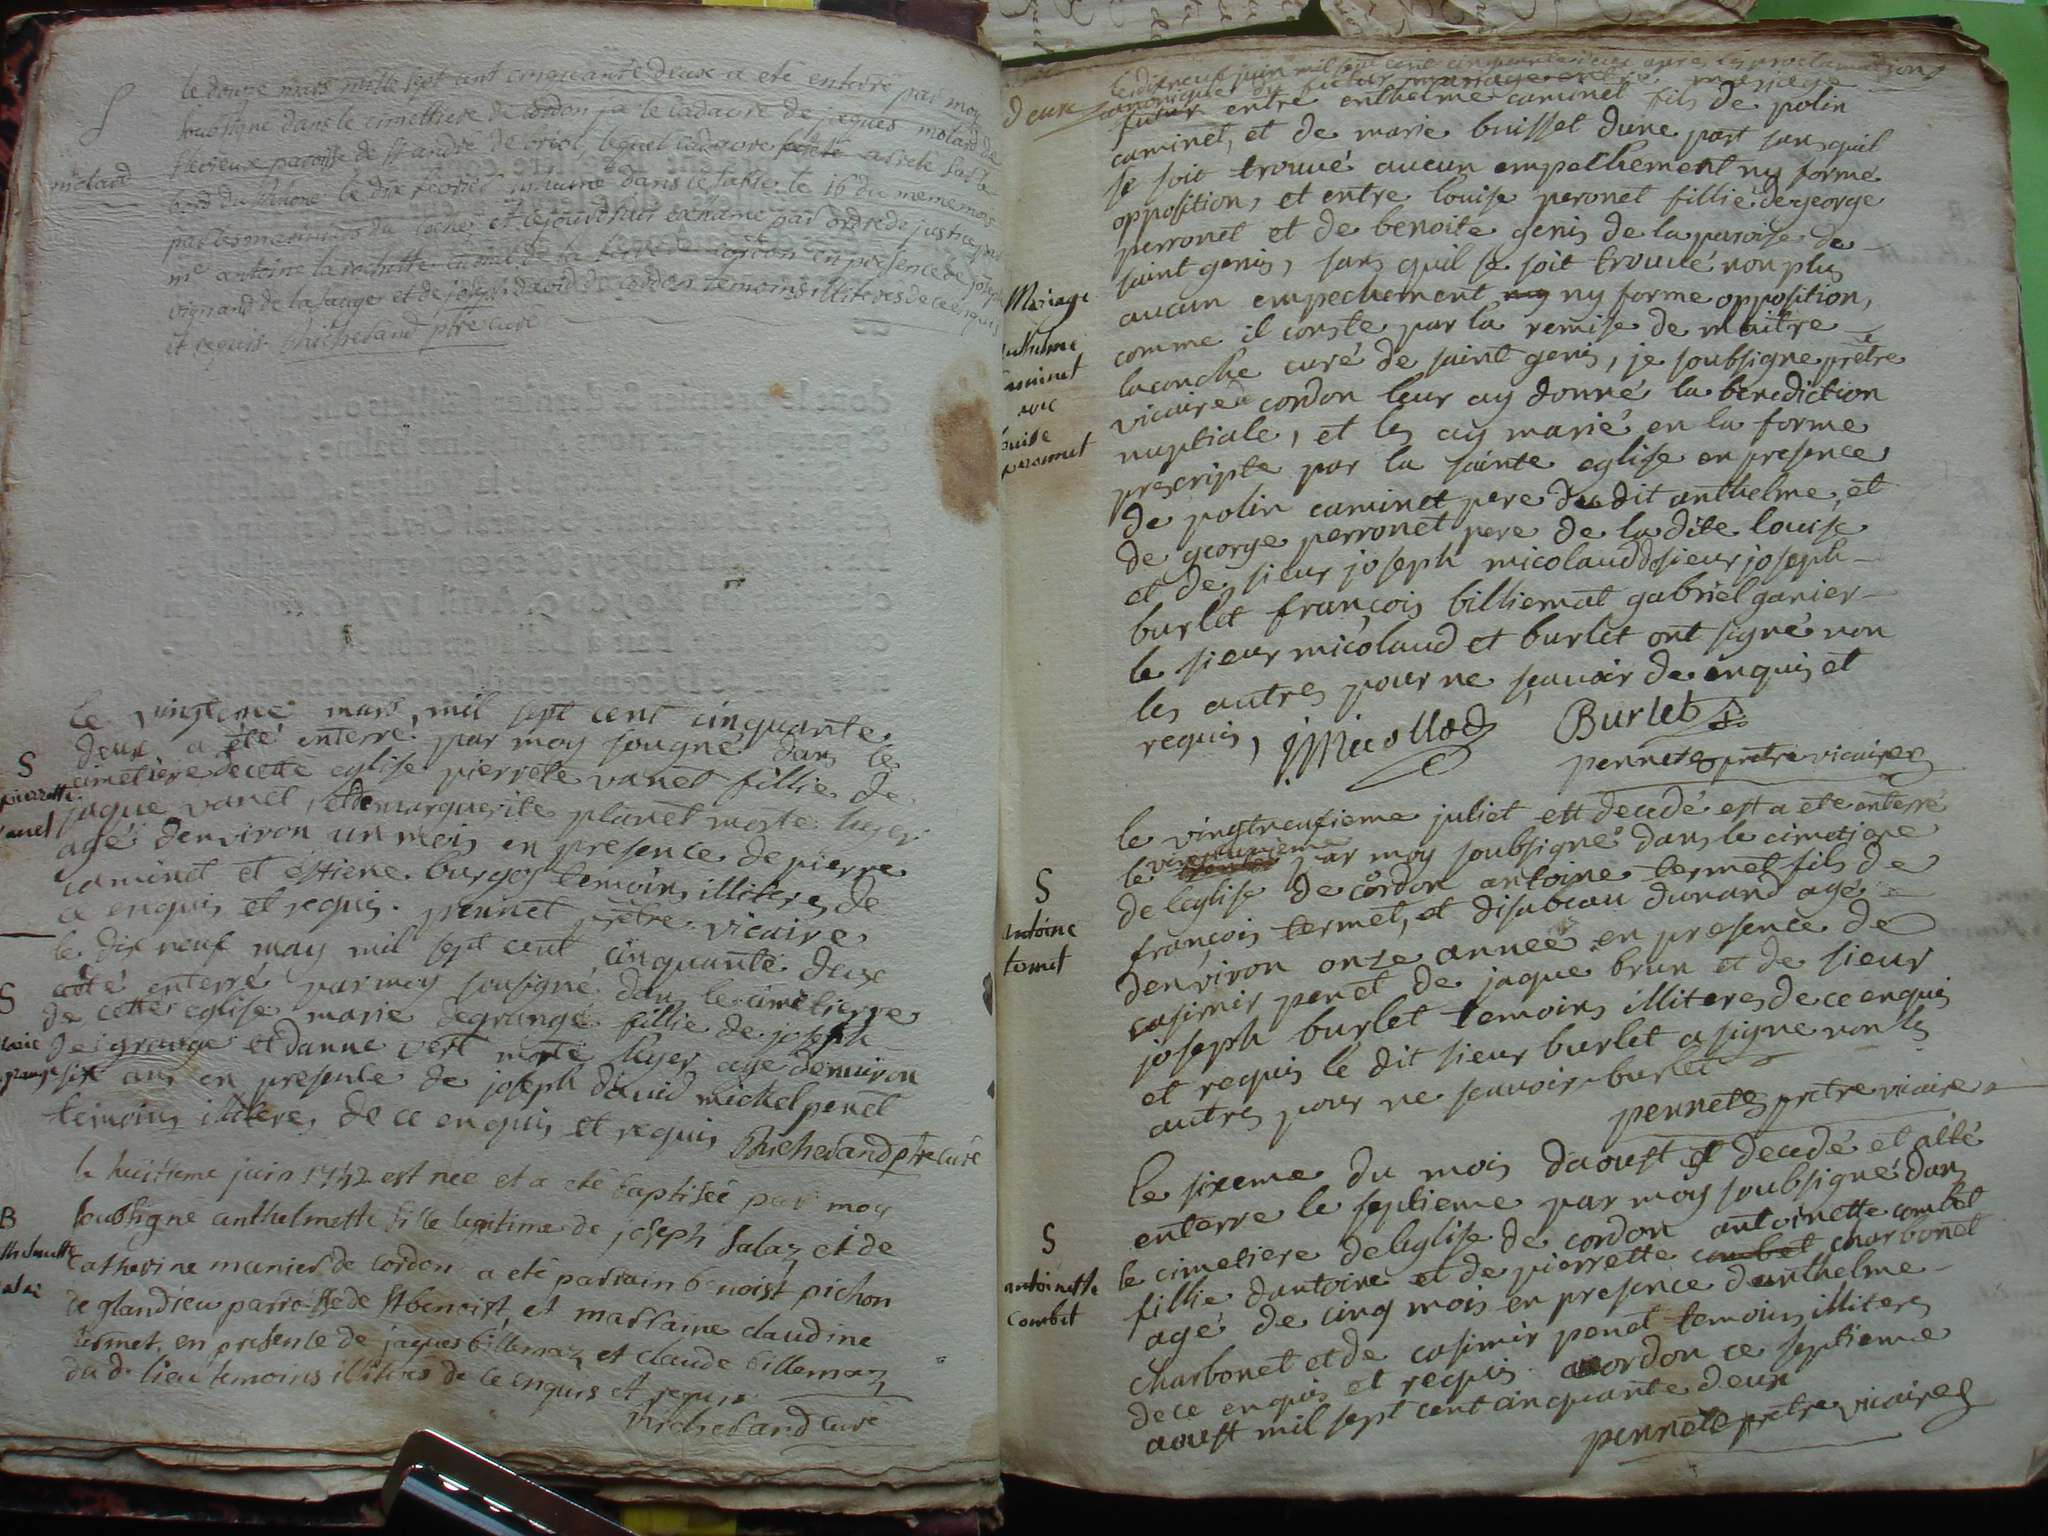 S
molard
le douze mars mille sept cent cinquante deux a eté enterré par moy
soubsigné dans le cimettiere de cordon le cadavre de jaques molard de
paroisse de st andre de briol, lequel cadavre
bord du Rhone le dix fevrier inhumé dans le sable le 16 du meme mois
par les mariniers du et cejourdhuy exhamé par ordre de justice
me antoine la rochette de la de cordon en presence de joseph
vignand de la sauger et de joseph david de cordon temoins illiterés de ce enquis
et requis. Richerand ptre curé
S
pierrette
vanet
le vingt mars, mil sept cent cinquante
deux a été enterré par moy sougné dans le
cimetiere de cette eglise pierrete vanet fillie de
jaque vanet, et de marguerite planet morte hyer
agé denviron un mois en presence de pierre
caminet et estiene burgos temoins illiteres de
ce enquis et requis. pennet prêtre vicaire
S
le dix neuf may mil sept cent cinquante deux
a eté enterré par moy sousigné dans le cimetierre
de cette eglise marie degrange fillie de joseph
degrange et danne vert morte hyer age denviron
six ans en presence de joseph david michel penet
temoins illiteres de ce enquis et requis Richerand ptre curé
B
le huitieme juin 1752 est née et a eté baptisée par moy
soubsigné anthelmette fille legitime de joseph Salaz et de
catherine munier de cordon a eté parrain benoist pichon
de glandieu parroisse de st benoist, et marraine claudine
termet, en presence de jaques billemaz et claude billemaz
du d. lieu temoins illiterés de ce enquis et requis
Richerand curé
deux
le dixneuf juin mil sept cent cinquante deux apres les proclamations
canonique du futur mariage
futur entre enthelme caminet fils de polin
caminet, et de marie buisset dune part sans quil
se soit trouvé aucun empechement ny formé
opposition, et entre louise peronet fillie de george
perronet et de benoite genis de la paroise de
saint genis, sans quil se soit trouvé non plus
aucun empechement ny ny forme opposition,
comme il conste par la remise de maitre
laconche curé de saint genis, je soubsigne prêtre
vicaire a cordon leur ay donné la benediction
nuptiale, et les ay marié en la forme
prescripte par la sainte eglise en presence
de polin caminet pere du dit anthelme, et
de george perronet pere de la dite louise
et de sieur joseph micolaud sieur joseph
burlet françois billiemat gabriel ganier
le sieur micolaud et burlet ont signé non
les autres pour ne sçavoir de enquis et
requis, J Micollod Burlet
pennet prêtre vicaire
Mariage
caminet
avec
louise
peronnet
S
antoine
termet
le vingtneufieme juliet est decedé est a eté enterré
le par moy soubsigné dans le cimetiere
de leglise de cordon antoine termet fils de
françois termet, et disabeau durand agé
denviron onze année en presence de
casimir penet de jaque brun et de sieur
joseph burlet temoins illiteres de ce enquis
et requis le dit sieur burlet a signe non les
autres pour ne scavoir burlet
pennet prêtre vicaire
S
antoinette
combet
le sixeme du mois daoust est decedé et a été
enterre le septieme par moy soubsigné dans
le cimetiere de leglise de cordon antoinette combet
fillie dantoine et de pierrette combet charbonet
agé de cinq mois en presence danthelme
charbonet et de casimir penet temoins illiteres
de ce enquis et requis a cordon ce septieme
aoust mil sept cent cinquante deux
pennet prêtre vicaire